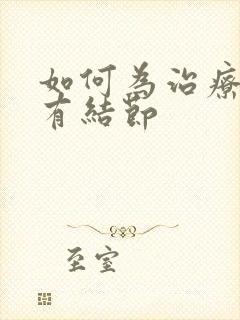 如何為治療
有結節
至室